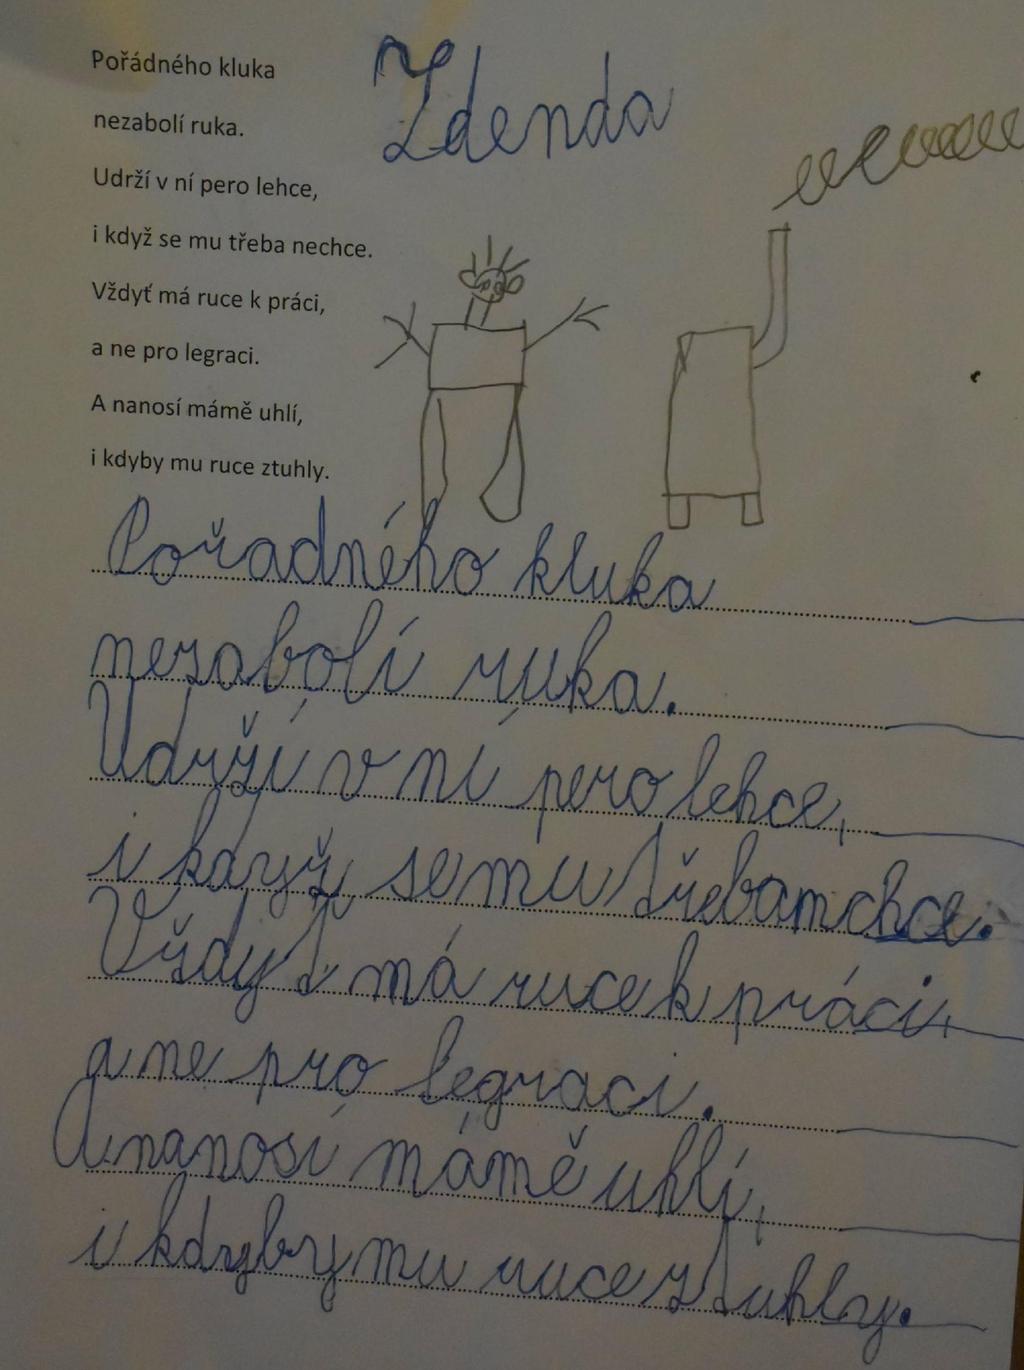 Pořádného kluka
nezabolí ruka.
Udrží v ní pero lehce,
i když se mu třeba nechce.
Vždyť má ruce k práci,
a ne pro legraci.
A nanosí mámě uhlí,
i kdyby mu ruce ztuhly.
Zdenda
Pořadného kluka
nezabolí ruka.
Udrží v ní pero lehce,
i když se mu třeba nechce.
Vždyť má ruce k práci,
a ne pro legraci.
A nanosí mámě uhlí,
i kdyby mu ruce ztuhly.